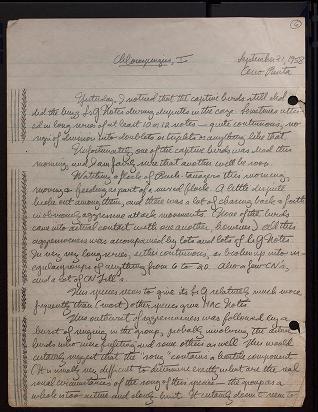 6
Chlorospingus, I
September 21, 1958
Cerro Punta
Yesterday, I noticed that the captive birds still
did the buzz & G Notes during disputes in the cage. Sometimes
in long series of at least 10 or 12 notes — quite continuous, no
sign of division into doublets or triplets or anything like that.
Unfortunately, one of the captive birds was dead this
morning, and I am fairly sure that another will be soon.
Watching a flock of Bush-tanagers this morning,
moving & feeding as part of a mixed flock. A little dispute
broke out among them, and there was a lot of chasing back & forth
aggressive attack movements. None of the birds
came into actual contact with one another, however. All this
aggressiveness was accompanied by lots and lots of G Notes.
In very very long series, either continuous, or broken up into
groups of anything from 6 to 20. Also a few CN's,
and a lot of
This species seems to give its G relatively much more
frequently than (most) other species give Notes.
This outburst of aggressiveness was followed by a
burst of singing in the group, probably involving the
birds who were fighting and some others as well. This would
certainly suggest that the "song" contains a hostile component.
(It is usually very difficult to determine exactly what are the
social circumstances of the song of this species — the group as a
whole is too active and closely knit. It certainly doesn't seem to